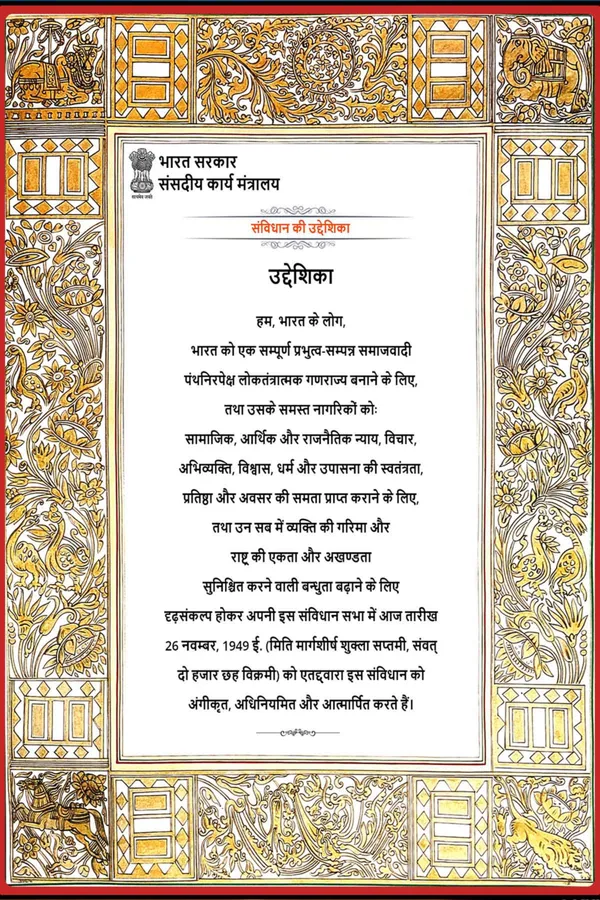 भारत सरकार
संसदीय कार्य मंत्रालय
सत्यमेव जयते
संविधान की उद्देशिका
उद्देशिका
हम, भारत के लोग,
भारत को एक सम्पूर्ण प्रभुत्व-सम्पन्न समाजवादी
पंथनिरपेक्ष लोकतंत्रात्मक गणराज्य बनाने के लिए,
तथा उसके समस्त नागरिकों कोः
सामाजिक, आर्थिक और राजनैतिक न्याय, विचार,
अभिव्यक्ति, विश्वास, धर्म और उपासना की स्वतंत्रता,
प्रतिष्ठा और अवसर की समता प्राप्त कराने के लिए,
तथा उन सब में व्यक्ति की गरिमा और
राष्ट्र की एकता और अखण्डता
सुनिश्चित करने वाली बन्धुता बढ़ाने के लिए
दृढ़संकल्प होकर अपनी इस संविधान सभा में आज तारीख
26 नवम्बर, 1949 ई. (मिति मार्गशीर्ष शुक्ला सप्तमी, संवत्
दो हजार छह विक्रमी) को एतद्द्वारा इस संविधान को
अंगीकृत, अधिनियमित और आत्मार्पित करते हैं।